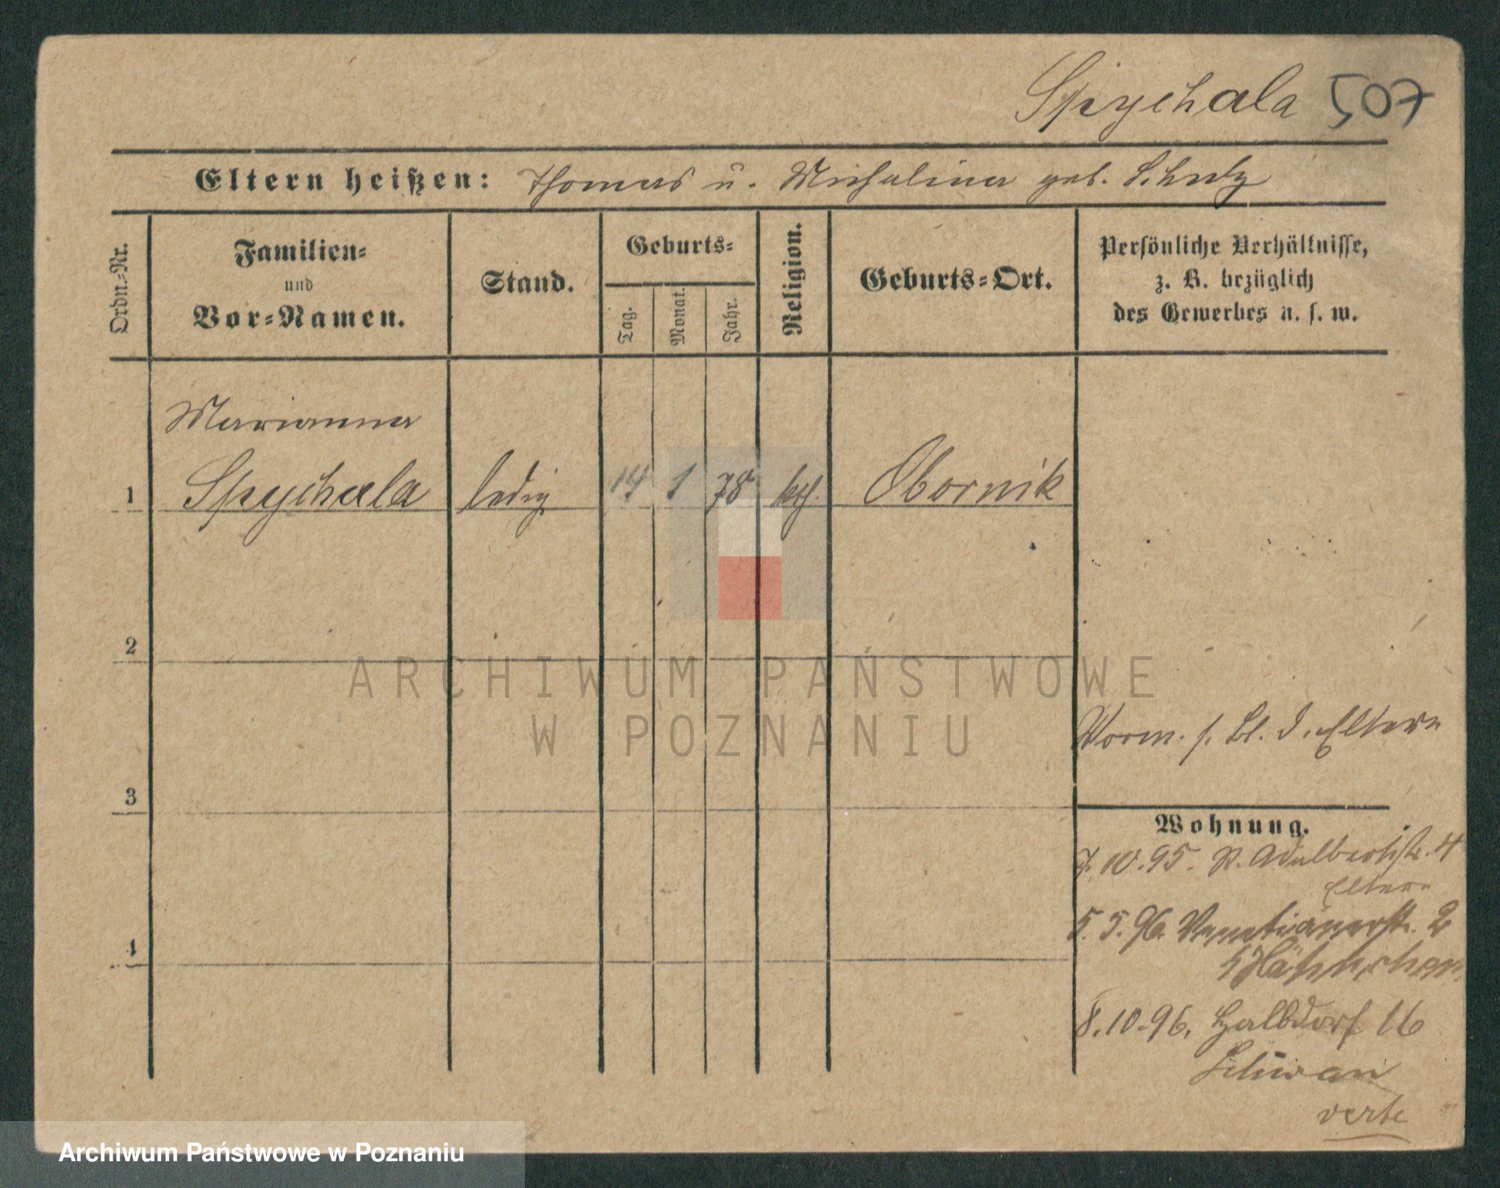 Spychala 507
Eltern heißen: Thomas u. Michalina geb. Schulz
Ordn.-Nr.
Familien-
und
Vor-Namen.
Stand.
Geburts-
Tag.
Monat.
Jahr.
Religion.
Geburts-Ort.
Persönliche Verhältnisse,
z. B. bezüglich
des Gewerbes u. s. w.
Marianna
1 Spychala ledig 14 1 78 kth. Obornik
2
ARCHIWUM PAŃSTWOWE
W POZNANIU
Vorm. s. Bl. d. Eltern
3
Wohnung.
7.10.95. St. Adalbertstr. 4
Eltern
5.5.96. Venetianerstr. 2
4
Hähnchen
8.10.96. Halbdorf 16
Schwan
verte
Archiwum Państwowe w Poznaniu